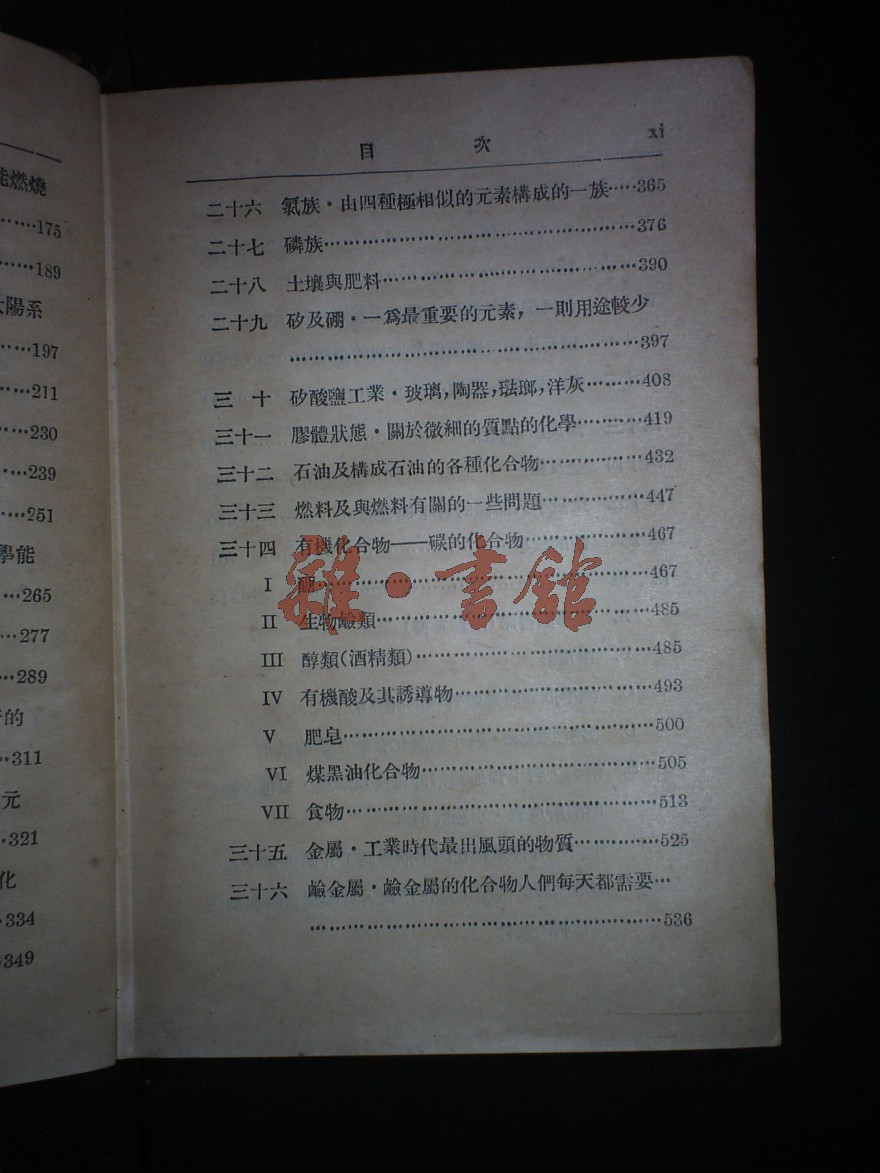 能燃燒
175
189
太陽系
197
211
230
239
251
學能
265
277
289
的
311
元
321
化
334
349
目 次 xi
二十六 氯族·由四種極相似的元素構成的一族……365
二十七 磷族……376
二十八 土壤與肥料……390
二十九 矽及硼·一爲最重要的元素，一則用途較少
……397
三 十 矽酸鹽工業·玻璃，陶器，琺瑯，洋灰……408
三十一 膠體狀態·關於微細的質點的化學……419
三十二 石油及構成石油的各種化合物……432
三十三 燃料及與燃料有關的一些問題……447
三十四 有機化合物——碳的化合物……467
I ……467
II 生物鹼類……485
III 醇類（酒精類）……485
IV 有機酸及其誘導物……493
V 肥皂……500
VI 煤黑油化合物……505
VII 食物……513
三十五 金屬·工業時代最出風頭的物質……525
三十六 鹼金屬·鹼金屬的化合物人們每天都需要…
……536
雜·書館